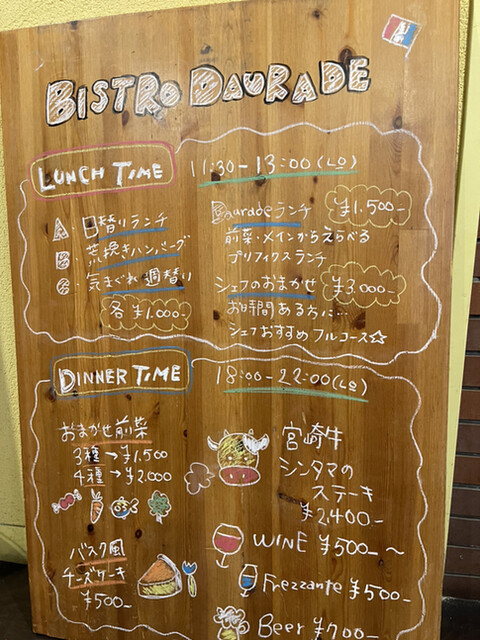 BISTRO DAURADE
LUNCH TIME
11:30-13:00(LO)
A・日替りランチ
B・荒挽きハンバーグ
C・気まぐれ週替り
各 ¥1.000-
Dauradeランチ
¥1.500-
前菜・メインからえらべる
プリフィクスランチ
シェフのおまかせ
¥3.000-
お時間ある方に…
シェフおすすめフルコース☆
DINNER TIME
18:00-22:00(LO)
おまかせ前菜
3種→¥1.500
4種→¥2.000
バスク風
チーズケーキ
¥500-
宮崎牛
シンタマの
ステーキ
¥2.400-
WINE ¥500-~
Frezzante ¥500-
Beer ¥700-